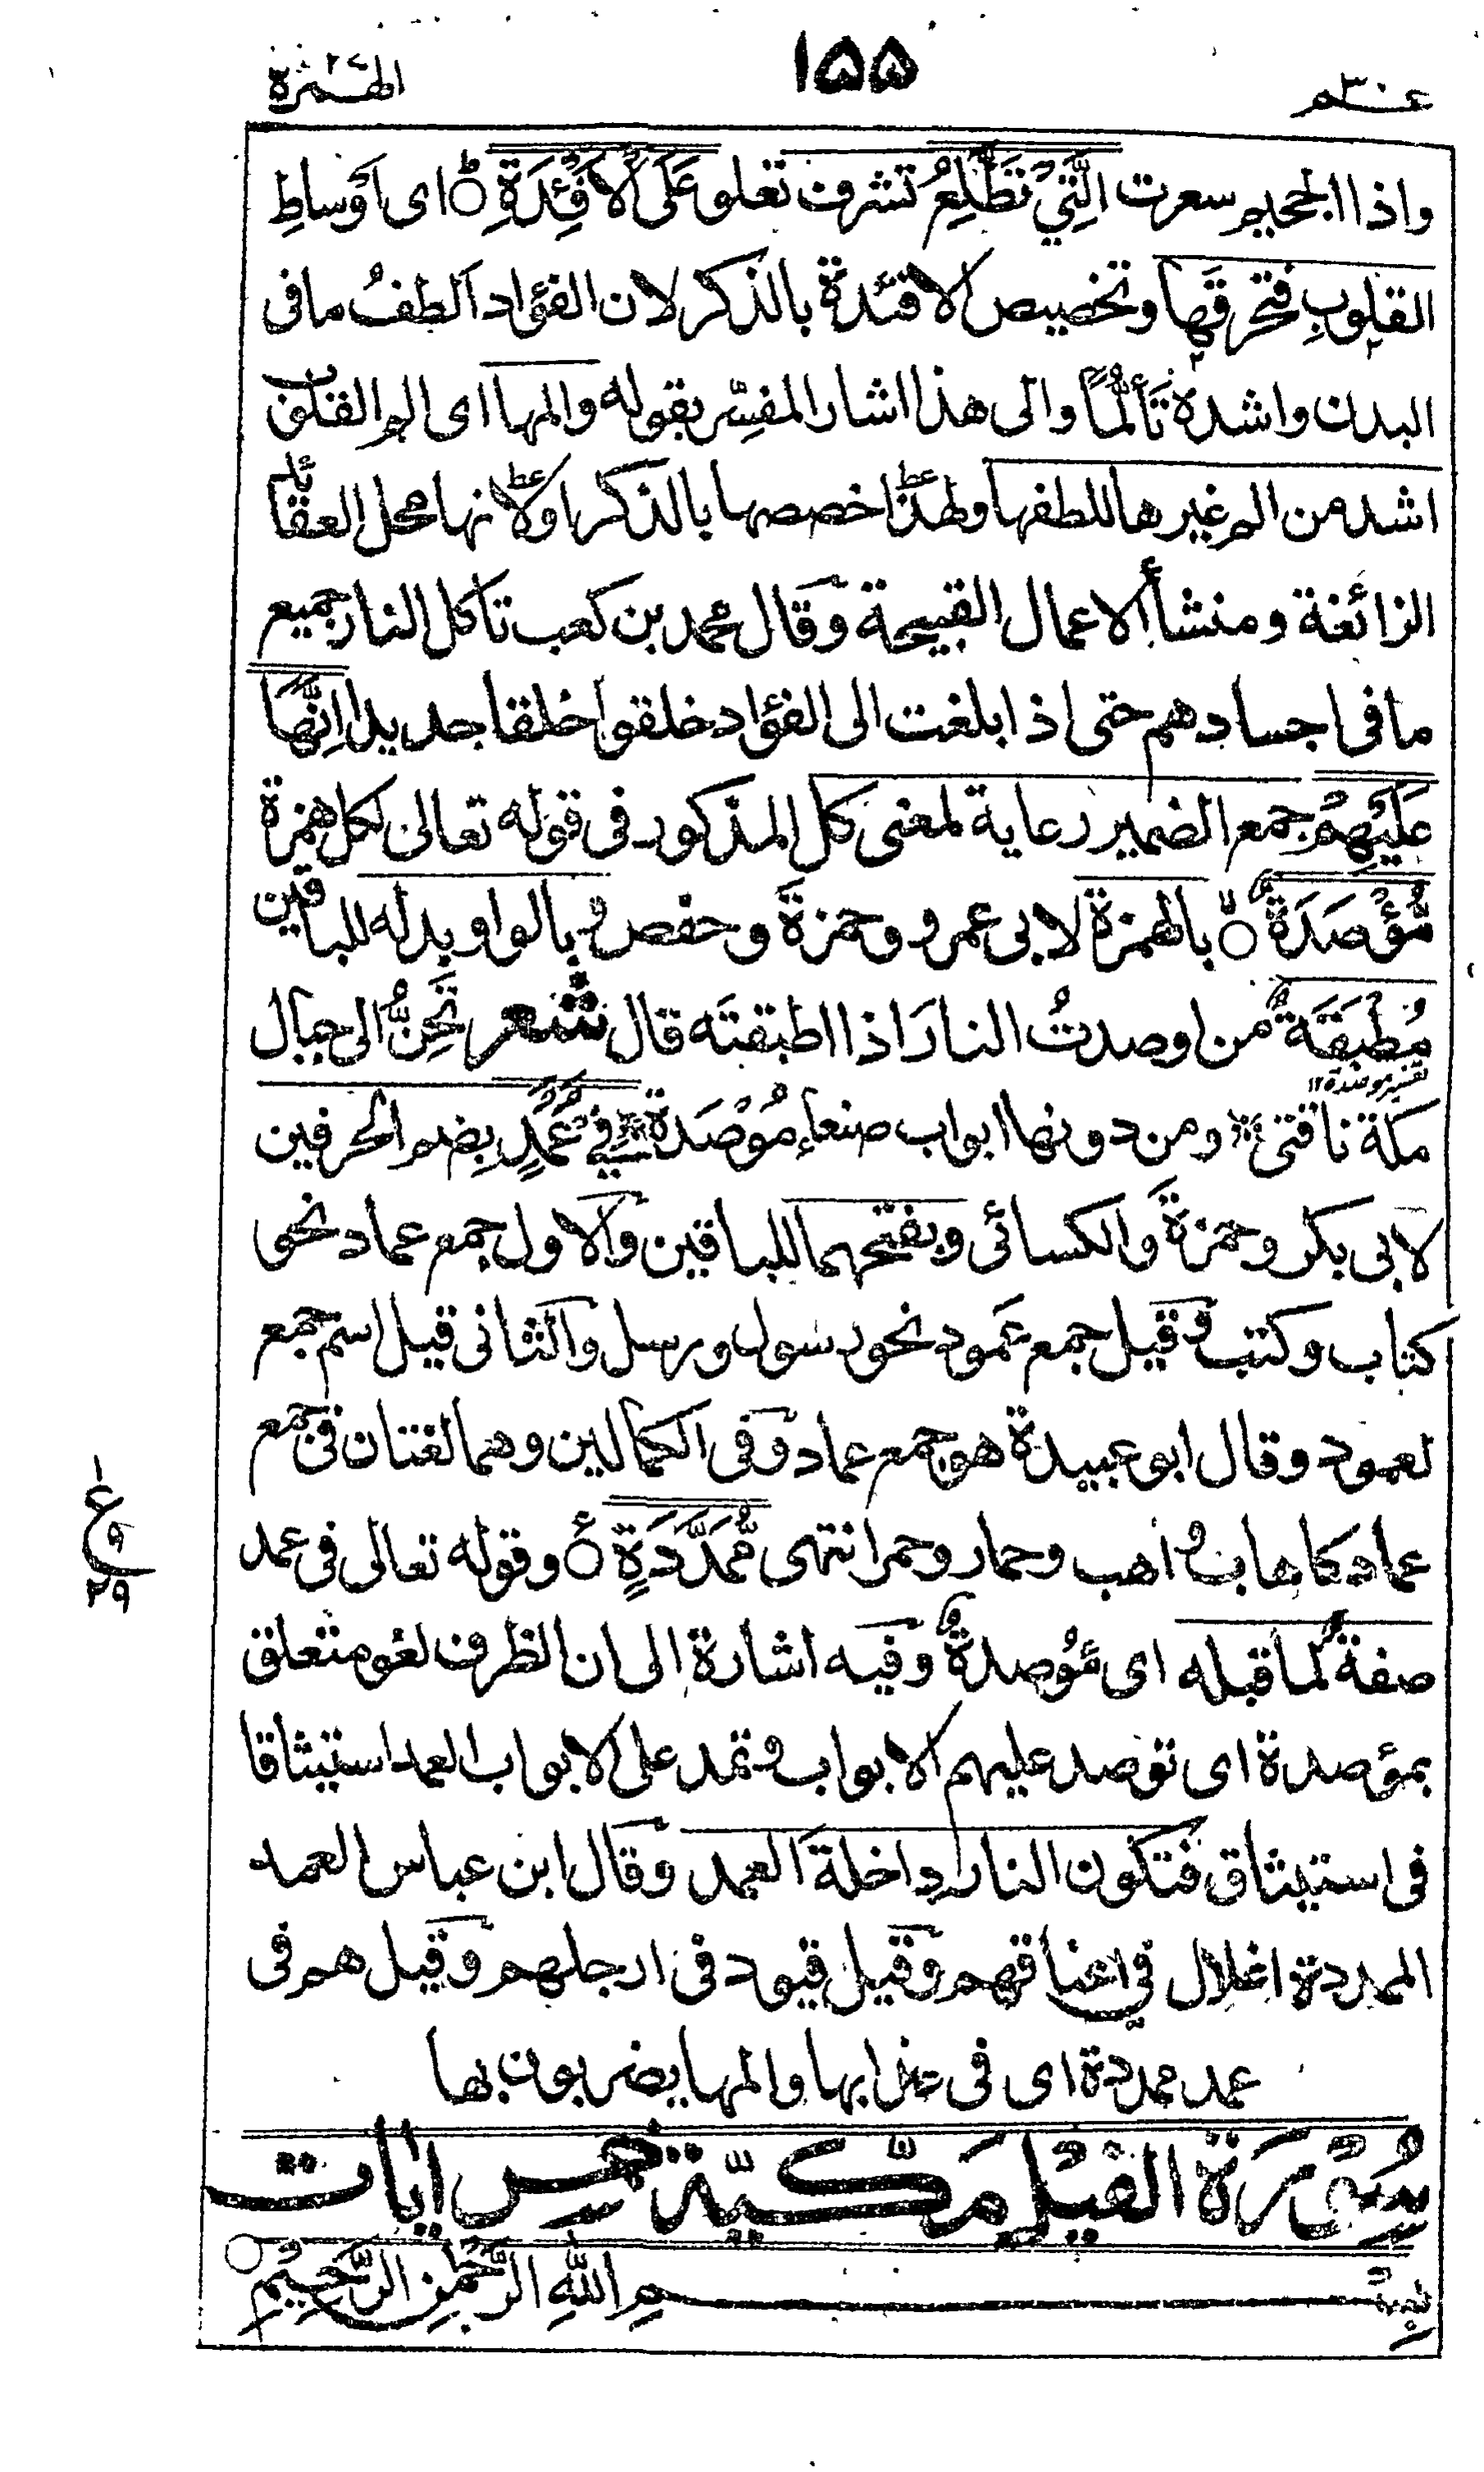 عم ٣٠
١۵۵
الهمزة
واذا الجحيم سعرت الَّتِيْ تَطَّلِعُ تشرف تعلو عَلَى الْاَفْئِدَةِ ای اَوْساطِ
القلوبِ فتحرقَها وتخصيص الافئدة بالذكر لان الفؤاد اَلطفُ ما فى
البدن واشده تَأَلُّماً والى هذا اشار المفسِّر بقوله والمها اى الم القلوب
اشد من الم غيرها للطفها ولهذا خصصها بالذكر او لانها محل العقائد
الزائغة ومنشأ الاعمال القبيحة وقال محمد بن كعب تاكل النار جميع
ما فى اجسادهم حتى اذا بلغت الى الفؤاد خلقوا خلقا جديدا اِنَّهَا
عَلَيْهِمْ جمع الضمير رعاية لمعنى كل المذكور فى قوله تعالى لكل همزة
مُّؤْصَدَةٌ بالهمزة لابى عمرو وحمزةَ وحفص وبالواو بدله للباقين
مُطْبَقَةٌ من اوصدتُ النارَ اذا اطبقتَه قال شعر تَحِنُّ الى جبال
تفسير موصدة ١٢
مكة ناقتى ومن دونها ابواب صنعاءِ مُوْصَدَة فِيْ عُمُدٍ بِضم الحرفين
لابى بكر وحمزةَ والكسائى وبفتحهما للباقين والاول جمع عماد نحو
كتاب وكتب وقيل جمع عَمود نحو رسول ورسل والثانى قيل اسم جمع
لعمود وقال ابو عبيدة هو جمع عماد وفى الكمالين وهما لغتان فى جمع
عماد كاهاب واهب وحمار وحمر انتهى مُّمَدَّدَةٍ وقوله تعالى فى عمد
صفةٌ لما قبله اى مُؤْصدةٌ وفيه اشارة الى ان الظرف لغو متعلق
بمؤصدة اى توصد عليهم الابواب وتمد على الابواب العمد استيثاقا
فى استيثاق فتكون النار داخلةَ العمد وقال ابن عباس العمد
الممددة اغلال فى اعناقهم وقيل قيود فى ارجلهم وقيل هم فى
عمد ممددة اى فى عذابها والمها يضربون بها
ع
١
٩
٢٩
سُوْرَة الفيْل مَكّيّة خمس اٰيات
بِسْمِ اللّٰهِ الرَّحْمٰنِ الرَّحِيْمِ